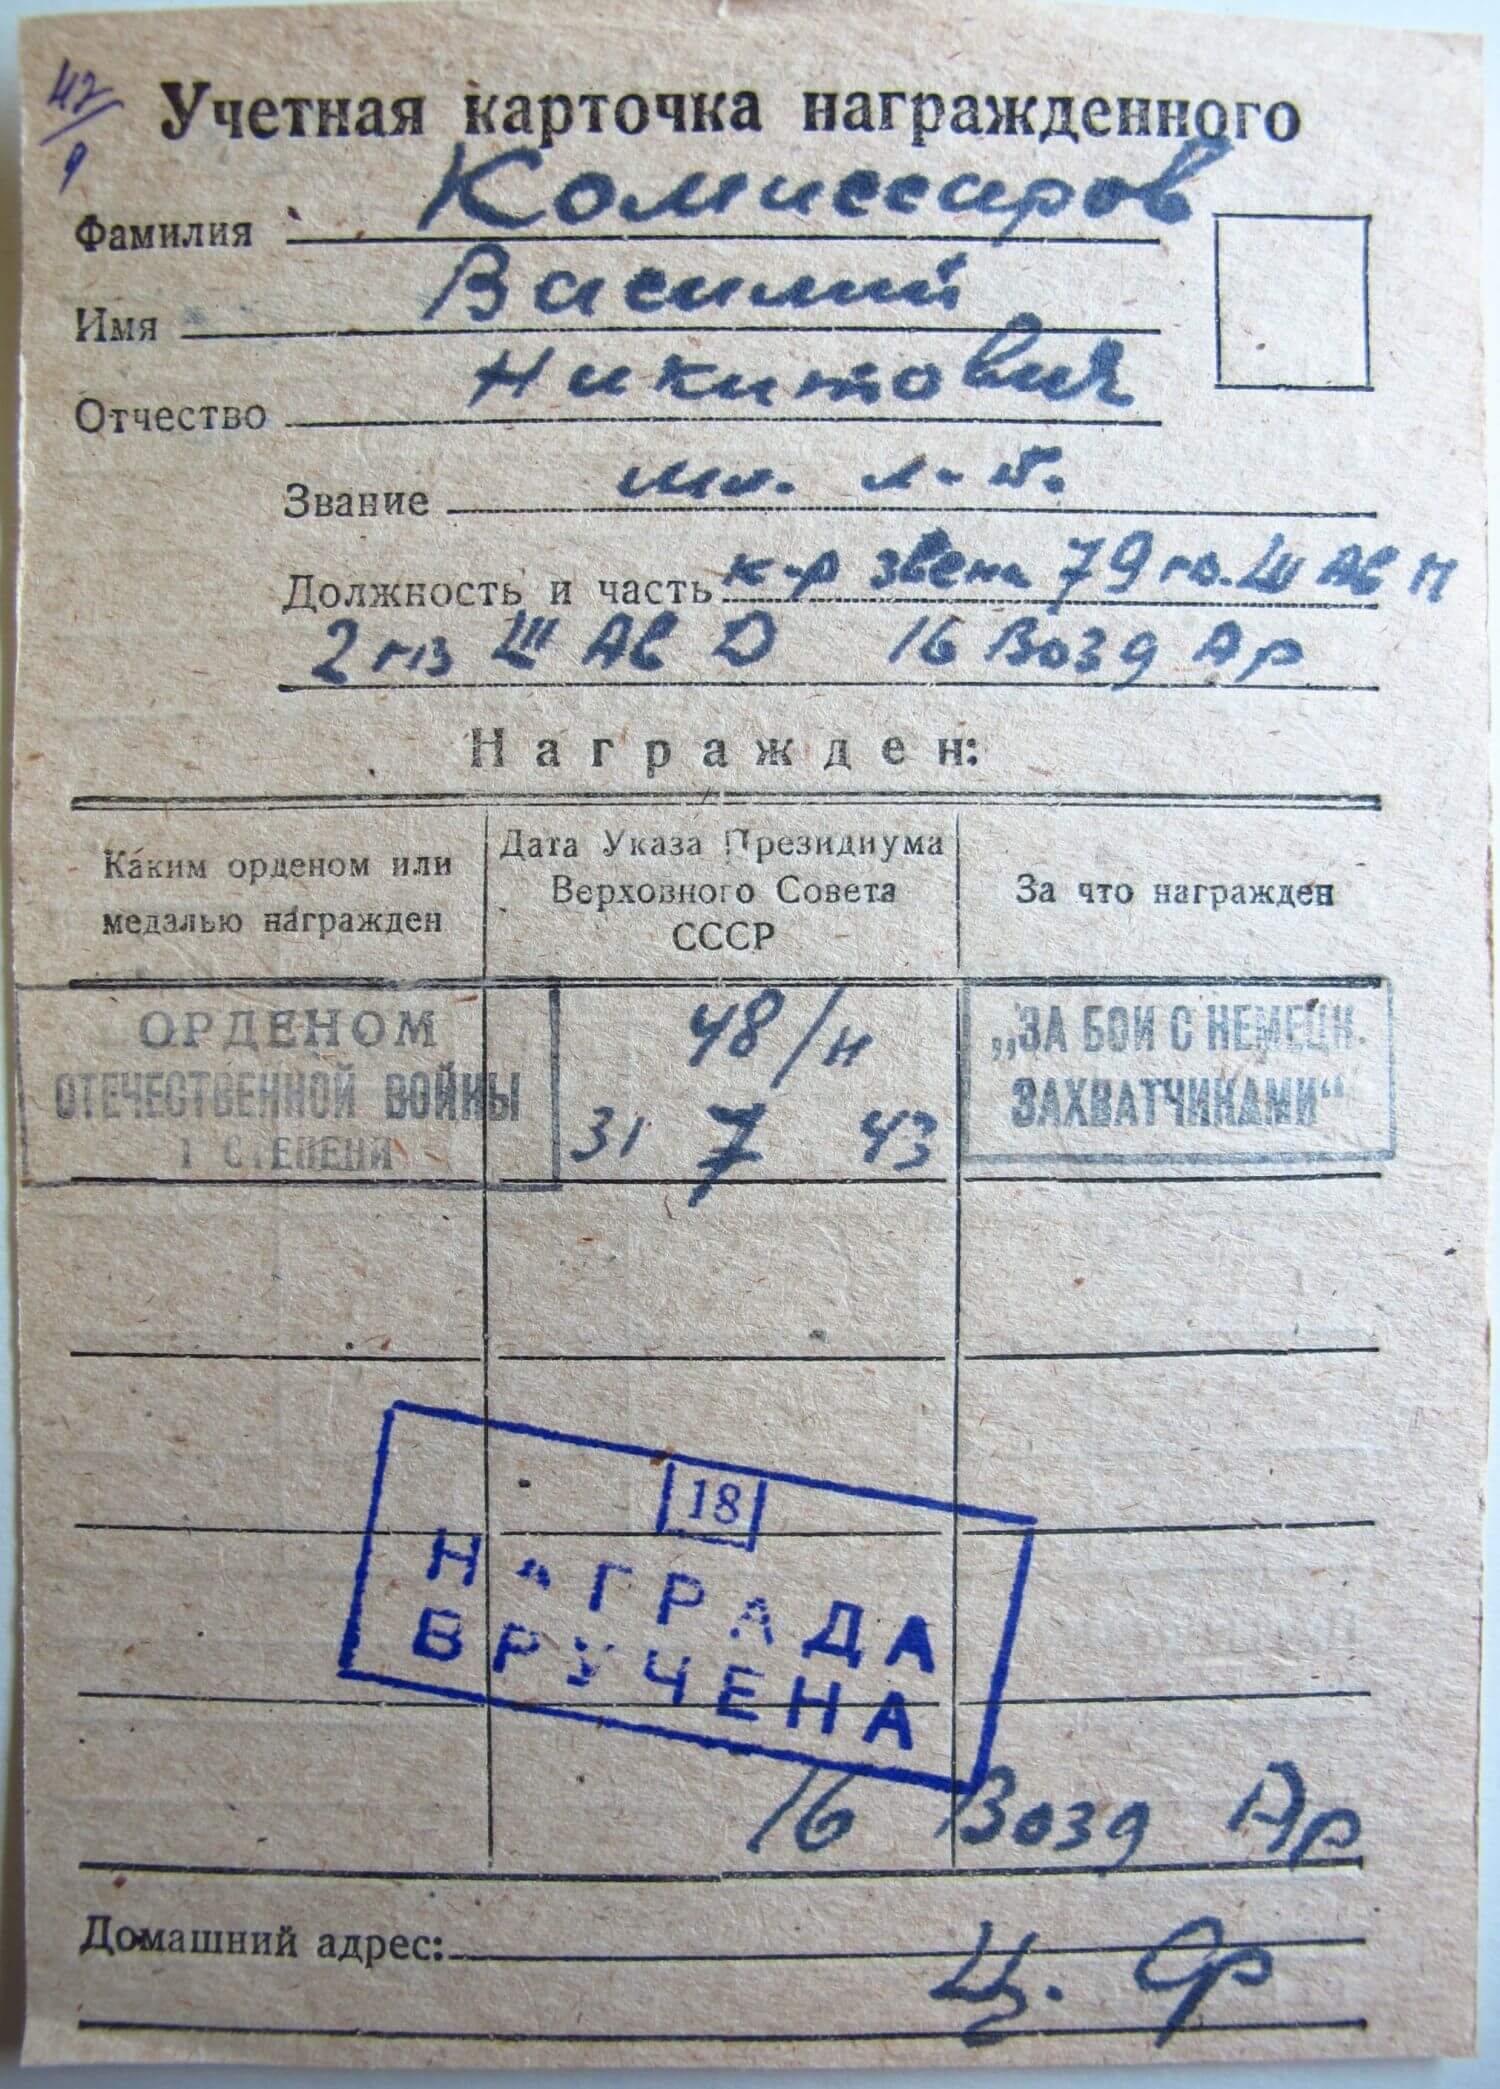 42/
Учетная карточка награжденного
Фамилия Комиссаров
Имя Василий
Отчество Никитович
Звание мл. л-т.
Должность и часть к-р звена 79 гв. Ш Ав П
2 гв Ш Ав Д 16 Возд Ар
Награжден:
Каким орденом или медалью награжден
Дата Указа Президиума Верховного Совета СССР
За что награжден
ОРДЕНОМ
ОТЕЧЕСТВЕННОЙ ВОЙНЫ
1 СТЕПЕНИ
48/н
31 7 43
„ЗА БОИ С НЕМЕЦК.
ЗАХВАТЧИКАМИ“
18
НАГРАДА
ВРУЧЕНА
16 Возд Ар
Домашний адрес:
Ц. Ср